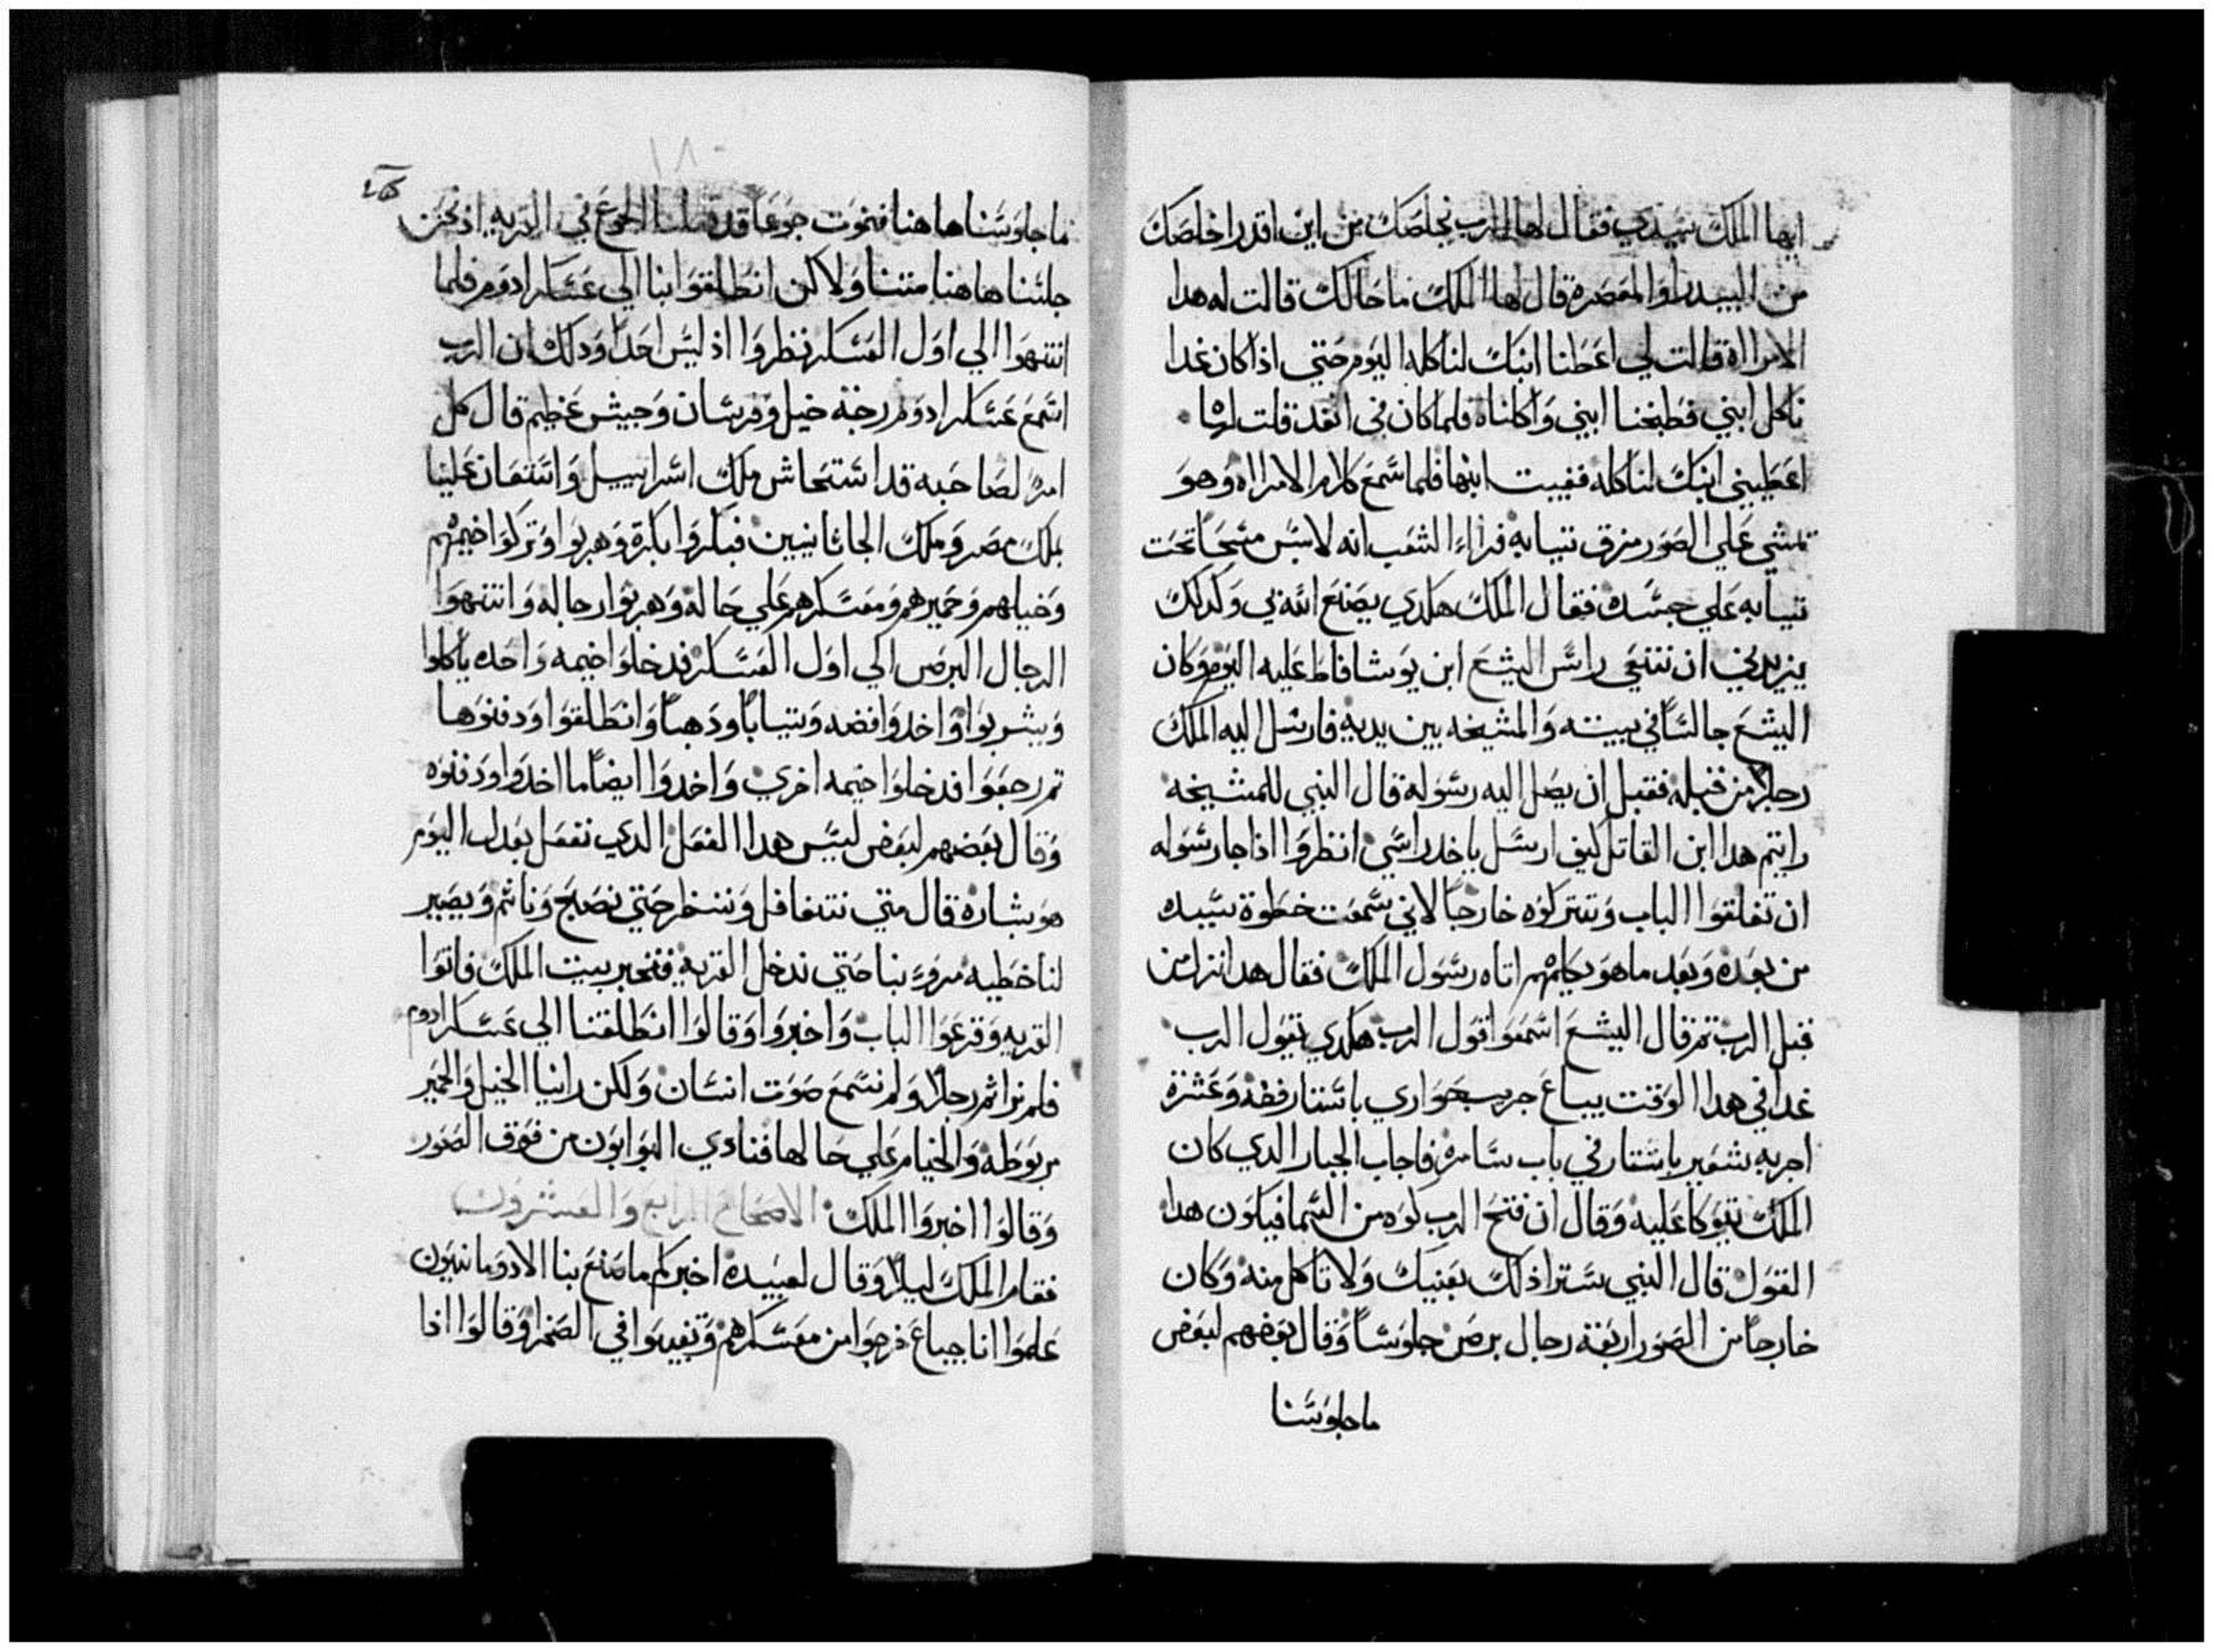 ايها الملك سيدي فقال لها الرب يخلصك من اين اقدر اخلصك
من البيدر او المعصره قال لها الملك ما حالك قالت له هدا
الامراه قالت لي اعطنا ابنك لناكله اليوم حتي اذا كان غدا
ناكل ابني فطبخنا ابني واكلناه فلما كان في الغد قلت لها
اعطيني ابنك لناكله فغيبت ابنها فلما سمع كلام الامراه وهو
تمشي علي الصور مزق تيابه فراء الشعب انه لابس مسحا تحت
تيابه علي جسده فقال الملك هكدي يصنع الله بي وكدلك
يزيدني ان تنتهي راس اليشع ابن يوشافاط عليه اليوم وكان
اليشع جالسا في بيته والمشيخه بين يديه فارسل اليه الملك
رجلا من قبله فقبل ان يصل اليه رسوله قال النبي للمشيخه
رايتم هدا ابن القاتل كيف ارسل ياخد راسي انظروا اذا جا رسوله
ان تغلقوا الباب وتتركوه خارجا لاني سمعت خطوة سيده
من بعده وبعد ما هو يكلمهم اتاه رسول الملك فقال هدا نزل من
قبل الرب تم قال اليشع اسمعوا قول الرب هكدي يقول الرب
غدا في هدا الوقت يباع جريب حواري باستار فضه وعشرة
اجربه شعير باستار في باب سامره فاجاب الجبار الدي كان
الملك يتوكا عليه وقال ان فتح الرب كوه من السما فيكون هدا
القول قال النبي ستراذلك بعنيك ولا تاكل منه وكان
خارجا من الصور اربعة رجال برص جلوسا وقال بعضهم لبعض
ما جلوسنا
١٨٠
ما جلوسنا هاهنا فنموت جوعا قد الجوع في القريه اذ نحن
جلسنا هاهنا متنا ولاكن انطلقوا بنا الي عسكر ادوم فلما
انتهوا الي اول العسكر نظروا اذ ليس احدا ودلك ان الرب
اسمع عسكر ادوم رجة خيل وفرسان وجيش عظيم قال كل
امرء لصاحبه قد استحاش ملك اسراييل واستعان علينا
بملك مصر وملك الجاثانيين فبكروا بكرة وهربوا وتركوا خيمهم
وخيلهم وحميرهم ومعسكرهم علي حاله وهربوا رجاله وانتهوا
الرجال البرص الي اول العسكر فدخلوا خيمه واحده ياكلوا
ويشربوا واخدوا فضه وتيابا ودهبا وانطلقوا ودفنوها
تم رجعوا فدخلوا خيمه اخري واخدوا ايضا ما اخدوا ودفنوه
وقال بعضهم لبعض ليس هدا الفعل الدي نفعل بعدل اليوم
هو بشاره قال متي نتغافل وننتظر حتي نصبح وناثم ويصير
لنا خطيه مرو بنا حتي ندخل القريه فنخبر بيت الملك فاتوا
القريه وقرعوا الباب واخبروا وقالوا انطلقنا الي عسكر ادوم
فلم نرا ثم رجلا ولم نسمع صوت انسان ولكن راينا الخيل والحمير
مربوطه والخيام علي حالها فنادي البوابون من فوق الصور
وقالوا اخبروا الملك الاصحاح الرابع والعشرون
فقام الملك ليلا وقال لعبيده اخبركم ما صنع بنا الادومانيون
علموا انا جياع خرجوا من معسكرهم وتغيبوا في الصحرا وقالوا اذا